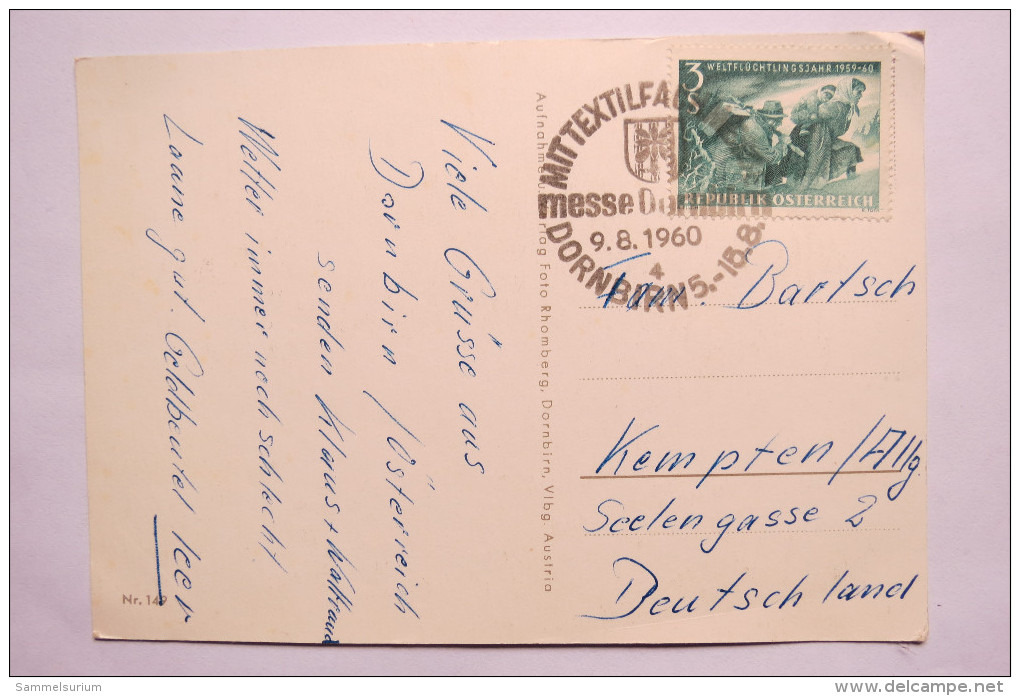 Viele Grüsse aus
Dornbirn / Österreich
senden Klaus + Waltraud
Wetter immer noch schlecht
Laune gut. Geldbeutel leer
Nr. 149
Aufnahme u. Verlag Foto Rhomberg, Dornbirn, Vlbg. Austria
MITTEXTILFACH
messe Dornbirn
9.8.1960
4
DORNBIRN 5.-15.8.
WELTFLÜCHTLINGSJAHR 1959-60
3 S
REPUBLIK ÖSTERREICH
Fam. Bartsch
Kempten /Allg.
Seelengasse 2
Deutschland
Sammelsurium
www.delcampe.net